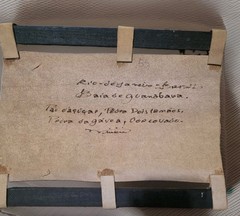 Rio de Janeiro - Brasil.
Baia de Guanabara.
Pão de Açucar, Pedra Dois Irmãos,
Pedra da Gávea, Corcovado.